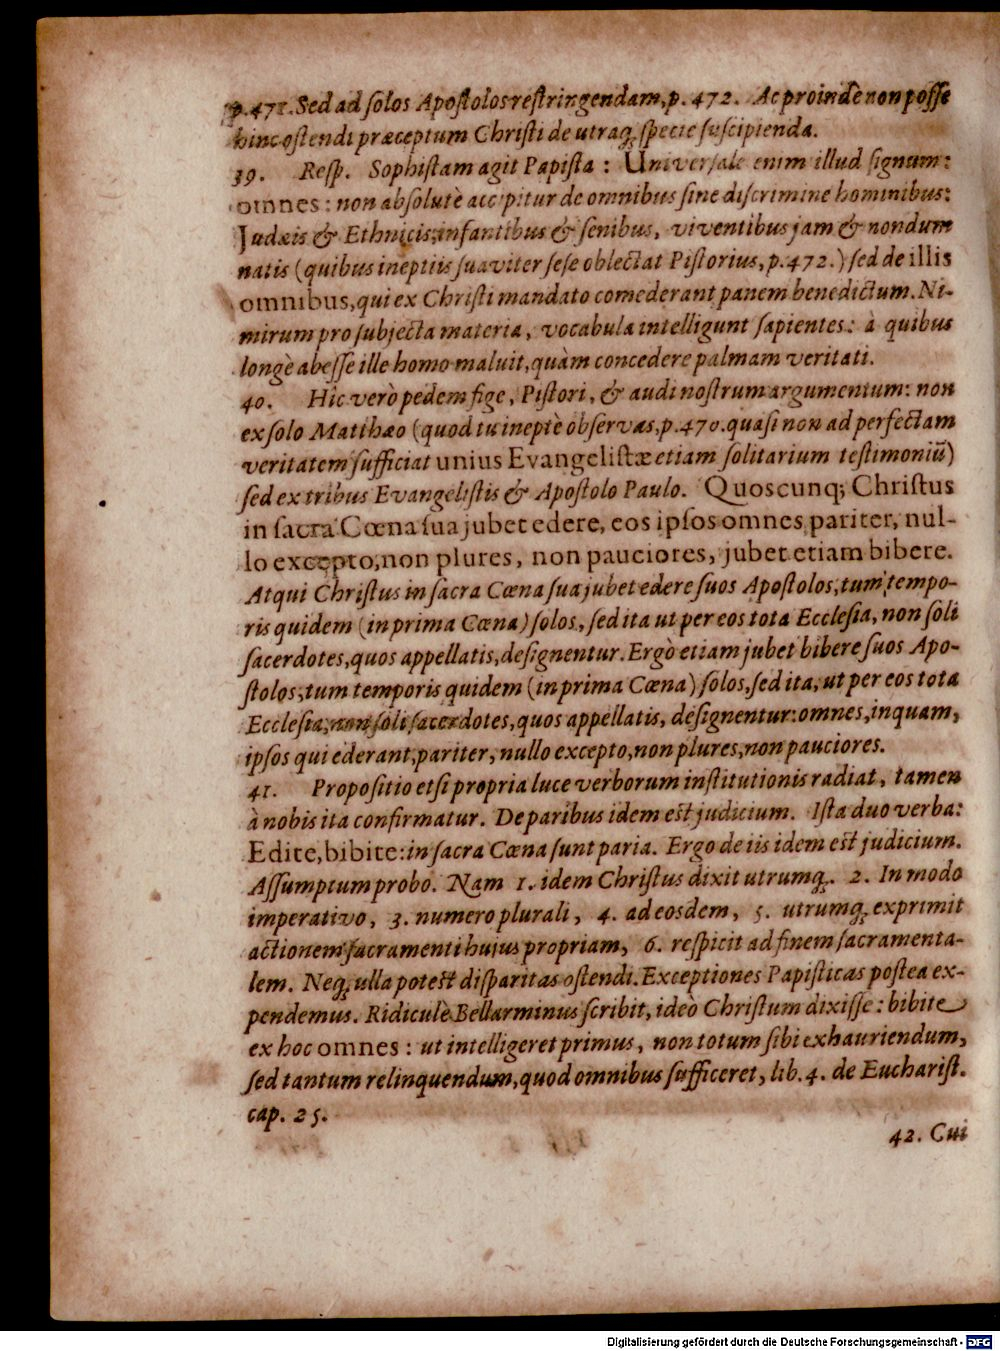 p.471. Sed ad ſolos Apoſtolos reſtringendam, p. 472. Ac proindè non poſſe
hinc oſtendi præceptum Chriſti de utraq; ſpecie ſuſcipienda.
39. Reſp. Sophiſtam agit Papiſta: Univerſale enim illud ſignum:
omnes: non abſolutè accipitur de omnibus ſine diſcrimine hominibus:
Judæis & Ethnicis, infantibus & ſenibus, viventibus jam & nondum
natis (quibus ineptiis ſuaviter ſeſe oblectat Piſtorius, p.472.) ſed de illis
omnibus, qui ex Chriſti mandato comederant panem benedictum. Ni-
mirum pro ſubjecta materia, vocabula intelligunt ſapientes: à quibus
longè abeſſe ille homo maluit, quàm concedere palmam veritati.
40. Hîc verò pedem fige, Piſtori, & audi noſtrum argumentum: non
ex ſolo Matthæo (quod tu ineptè obſervas, p.470. quaſi non ad perfectam
veritatem ſufficiat unius Evangeliſtæ etiam ſolitarium teſtimoniũ)
ſed ex tribus Evangeliſtis & Apoſtolo Paulo. Quoscunq; Chriſtus
in ſacra Cœna ſua jubet edere, eos ipſos omnes pariter, nul-
lo excepto, non plures, non pauciores, jubet etiam bibere.
Atqui Chriſtus in ſacra Cœna ſua jubet edere ſuos Apoſtolos, tum tempo-
ris quidem (in prima Cœna) ſolos, ſed ita ut per eos tota Eccleſia, non ſoli
ſacerdotes, quos appellatis, deſignentur. Ergò etiam jubet bibere ſuos Apo-
ſtolos, tum temporis quidem (in prima Cœna) ſolos, ſed ita, ut per eos tota
Eccleſia, non ſoli ſacerdotes, quos appellatis, deſignentur: omnes, inquam,
ipſos qui ederant, pariter, nullo excepto, non plures, non pauciores.
41. Propoſitio etſi propria luce verborum inſtitutionis radiat, tamen
à nobis ita confirmatur. De paribus idem eſt judicium. Iſta duo verba:
Edite, bibite: in ſacra Cœna ſunt paria. Ergo de iis idem eſt judicium.
Aſſumptum probo. Nam 1. idem Chriſtus dixit utrumq;. 2. In modo
imperativo, 3. numero plurali, 4. ad eosdem, 5. utrumq; exprimit
actionem ſacramenti hujus propriam, 6. reſpicit ad finem ſacramenta-
lem. Neq; ulla poteſt diſparitas oſtendi. Exceptiones Papiſticas poſtea ex-
pendemus. Ridiculè Bellarminus ſcribit, ideò Chriſtum dixiſſe: bibite
ex hoc omnes: ut intelligeret primus, non totum ſibi exhauriendum,
ſed tantum relinquendum, quod omnibus ſufficeret, lib. 4. de Euchariſt.
cap. 25.
42. Cui
Digitalisierung gefördert durch die Deutsche Forschungsgemeinschaft - DFG